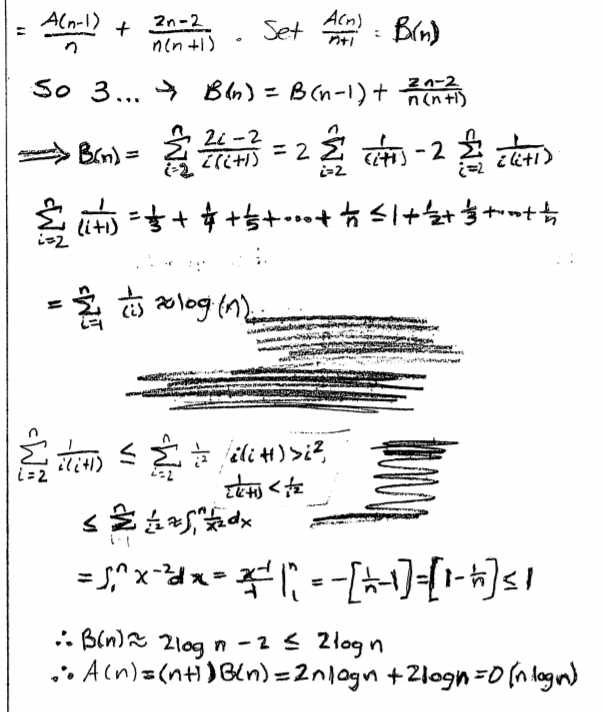 = A(n-1)/n + 2n-2/n(n+1) . Set A(n)/n+1 = B(n)
So 3... → B(n) = B(n-1) + 2n-2/n(n+1)
⟹ B(n) = n∑i=2 2i-2/i(i+1) = 2 n∑i=2 1/(i+1) - 2 n∑i=2 1/i(i+1)
n∑i=2 1/(i+1) = 1/3 + 1/4 + 1/5 + .... + 1/n ≤ 1 + 1/2 + 1/3 + ... + 1/n
= n∑i=1 1/(i) ≈ log(n).
n∑i=2 1/i(i+1) ≤ n∑i=2 1/i² / i(i+1) > i²,
1/i(i+1) < 1/i²
≤ n∑i=1 1/i² ≈ ∫₁ⁿ 1/x² dx
= ∫₁ⁿ x⁻² dx = x⁻¹/-1 |₁ⁿ = -[1/n - 1] = [1 - 1/n] ≤ 1
∴ B(n) ≈ 2log n - 2 ≤ 2log n
∴ A(n) = (n+1)B(n) = 2nlogn + 2logn = O(n logn)